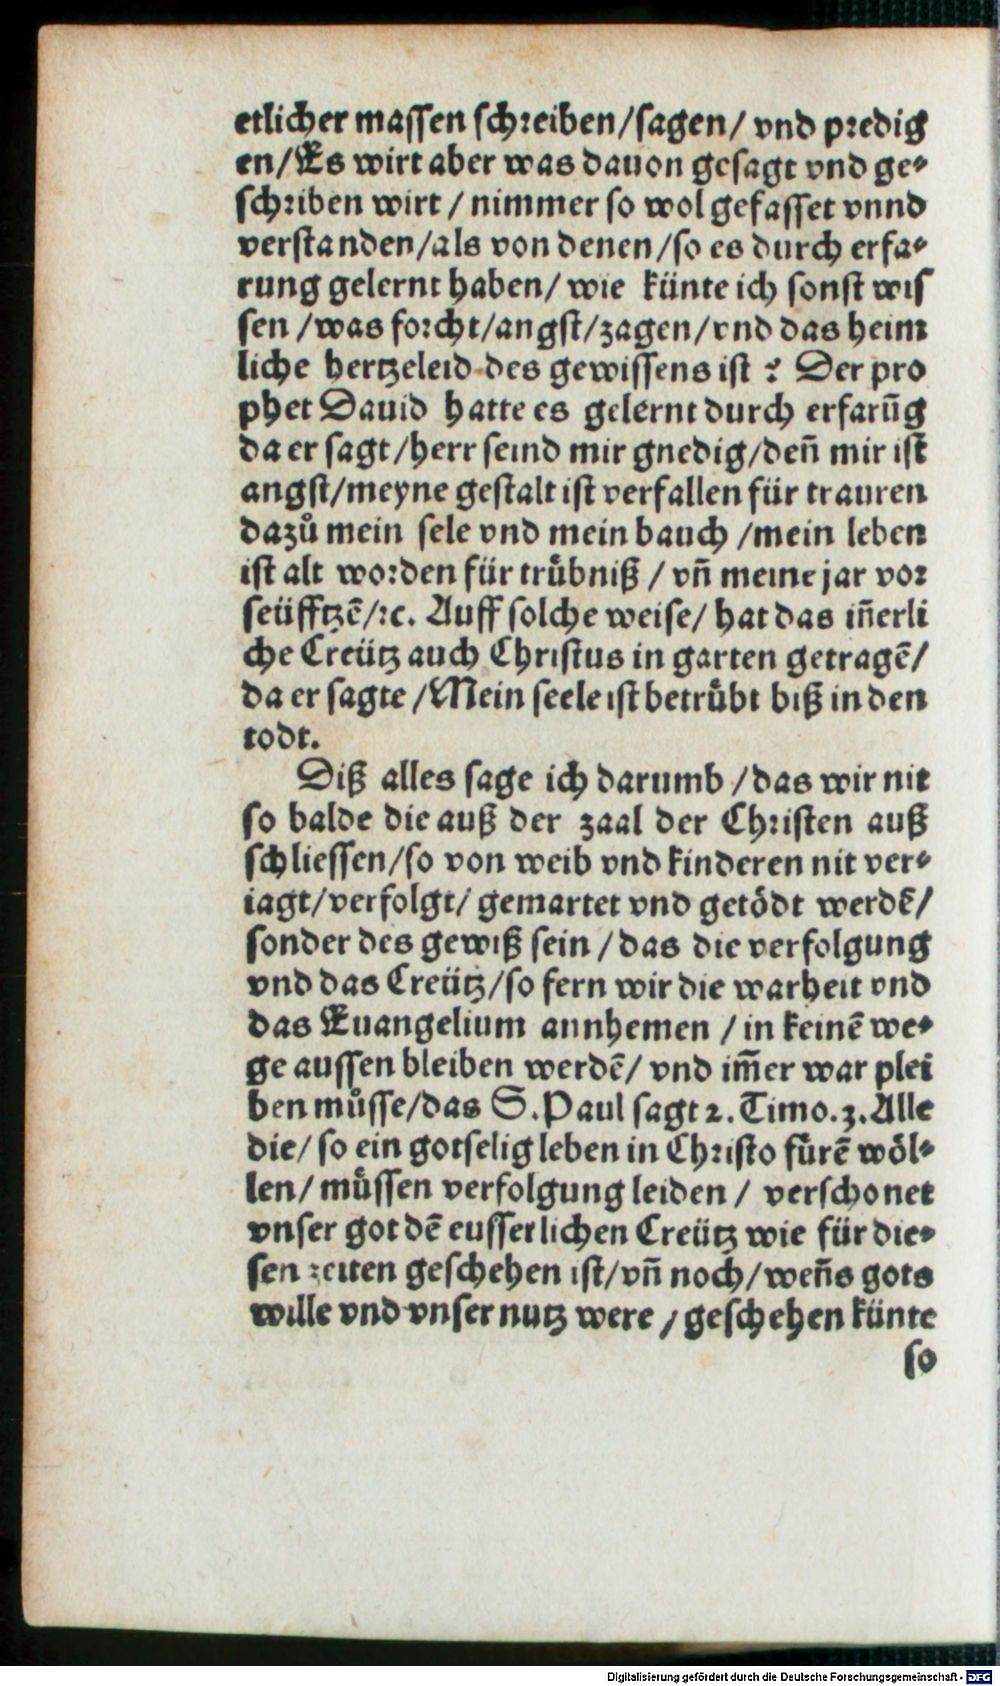 etlicher massen schreiben/sagen/ vnd predig
en/Es wirt aber was dauon gesagt vnd ge⸗
schriben wirt / nimmer so wol gefasset vnnd
verstanden/als von denen/so es durch erfa⸗
rung gelernt haben/ wie künte ich sonst wis
sen /was forcht/angst/zagen/vnd das heim
liche hertzeleid des gewissens ist ? Der pro
phet Dauid hatte es gelernt durch erfarūg
da er sagt/herr seind mir gnedig/deñ mir ist
angst/meyne gestalt ist verfallen für trauren
dazů mein sele vnd mein bauch /mein leben
ist alt worden für trübniß / vñ meine jar vor
seüfftzē/ꝛc. Auff solche weise/ hat das iñerli
che Creütz auch Christus in garten getragē/
da er sagte /Mein seele ist betrübt biß in den
todt.
Diß alles sage ich darumb /das wir nit
so balde die auß der zaal der Christen auß
schliessen/so von weib vnd kinderen nit ver⸗
iagt/verfolgt/ gemartet vnd getödt werdē/
sonder des gewiß sein /das die verfolgung
vnd das Creütz/so fern wir die warheit vnd
das Euangelium annhemen /in keinē we⸗
ge aussen bleiben werdē/ vnd im̃er war plei
ben můsse/das S.Paul sagt 2. Timo.3.Alle
die/ so ein gotselig leben in Christo fürē wöl⸗
len/ müssen verfolgung leiden / verschonet
vnser got dē eusserlichen Creütz wie für die⸗
sen zeiten geschehen ist/vñ noch/weñs gots
wille vnd vnser nutz were /geschehen künte
so
Digitalisierung gefördert durch die Deutsche Forschungsgemeinschaft - DFG